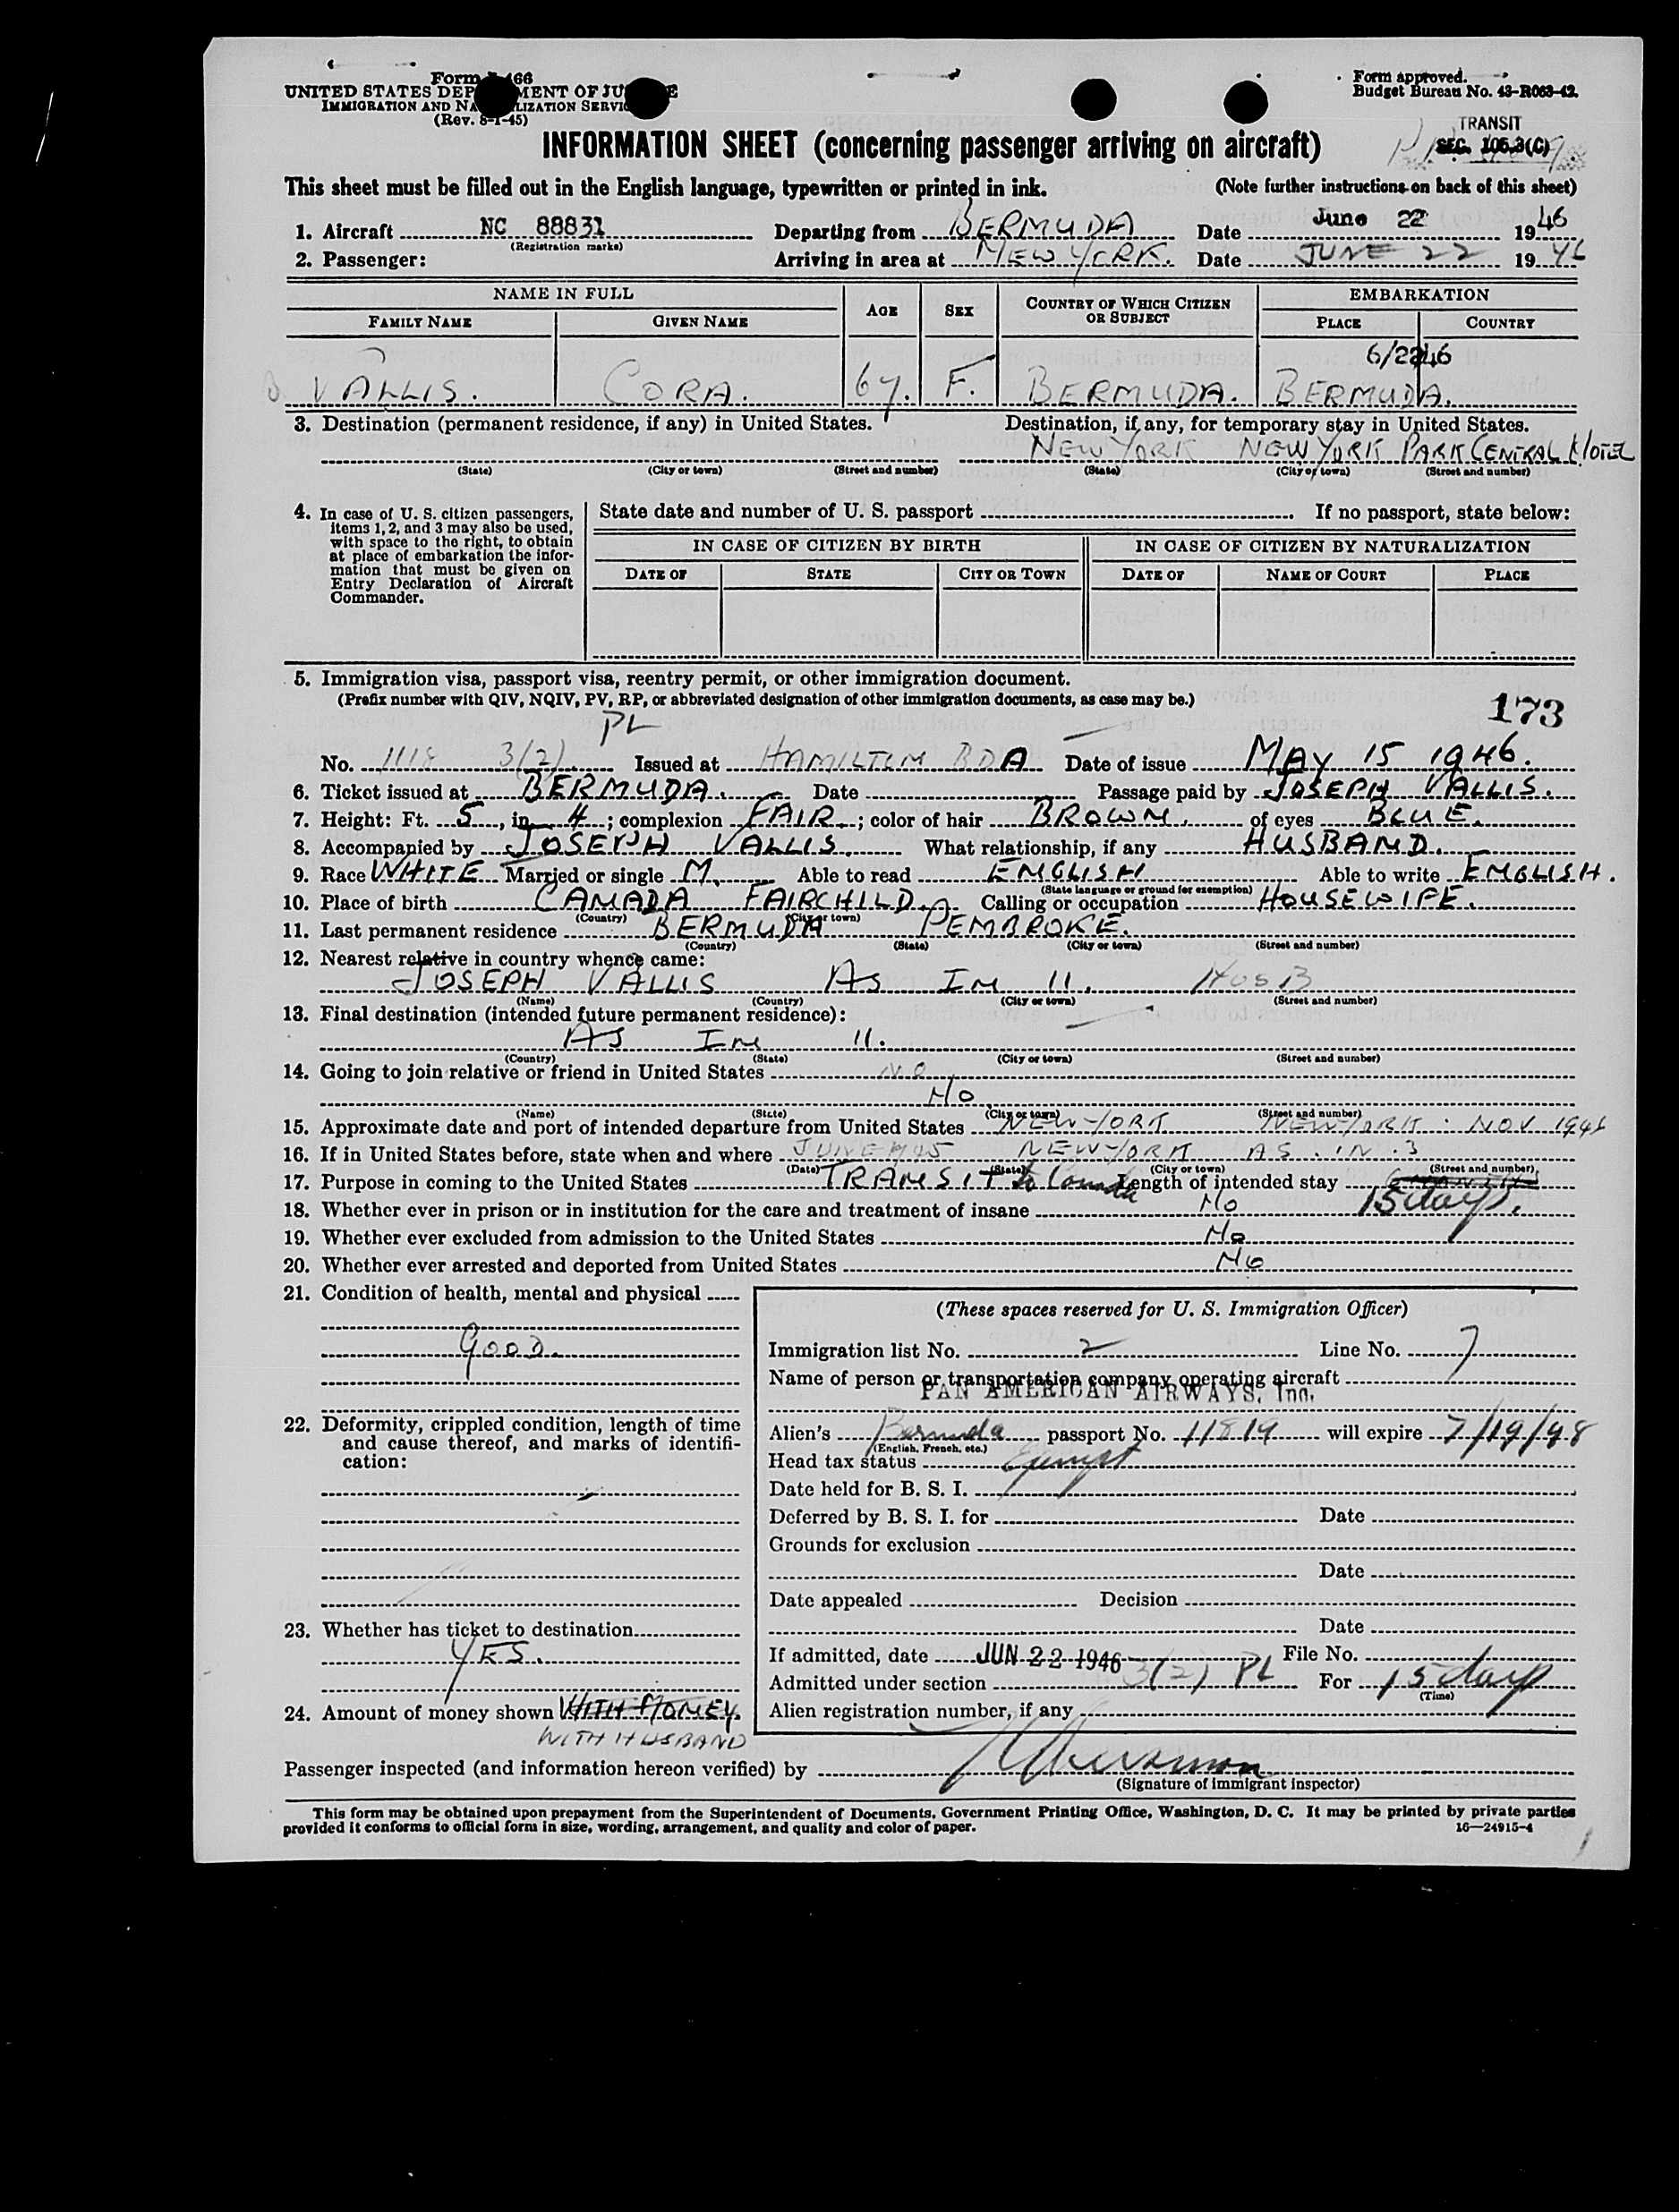 Form 466
UNITED STATES DEPARTMENT OF JUSTICE
IMMIGRATION AND NATURALIZATION SERVICE
(Rev. 8-1-45)
Form approved.
Budget Bureau No. 43-R063-42.
TRANSIT
SEC. 105.3(C)
INFORMATION SHEET (concerning passenger arriving on aircraft)
This sheet must be filled out in the English language, typewritten or printed in ink. (Note further instructions on back of this sheet)
1. Aircraft NC 88831 Departing from BERMUDA Date June 22 1946
(Registration marks)
2. Passenger: Arriving in area at NEW YORK. Date JUNE 22 1946
NAME IN FULL AGE SEX COUNTRY OF WHICH CITIZEN OR SUBJECT EMBARKATION
FAMILY NAME GIVEN NAME PLACE COUNTRY
6/22 46
VALLIS. CORA. 67. F. BERMUDA. BERMUDA.
3. Destination (permanent residence, if any) in United States. Destination, if any, for temporary stay in United States.
NEW YORK NEW YORK PARK CENTRAL HOTEL
(State) (City or town) (Street and number) (State) (City or town) (Street and number)
4. In case of U. S. citizen passengers, items 1, 2, and 3 may also be used, with space to the right, to obtain at place of embarkation the information that must be given on Entry Declaration of Aircraft Commander.
State date and number of U. S. passport If no passport, state below:
IN CASE OF CITIZEN BY BIRTH IN CASE OF CITIZEN BY NATURALIZATION
DATE OF STATE CITY OR TOWN DATE OF NAME OF COURT PLACE
5. Immigration visa, passport visa, reentry permit, or other immigration document.
(Prefix number with QIV, NQIV, PV, RP, or abbreviated designation of other immigration documents, as case may be.)
173
PL
No. 1118 3(2) Issued at HAMILTON BDA Date of issue MAY 15 1946.
6. Ticket issued at BERMUDA. Date Passage paid by JOSEPH VALLIS.
7. Height: Ft. 5, in. 4; complexion FAIR.; color of hair BROWN. of eyes BLUE.
8. Accompanied by JOSEPH VALLIS. What relationship, if any HUSBAND.
9. Race WHITE Married or single M. Able to read ENGLISH Able to write ENGLISH.
(State language or ground for exemption)
10. Place of birth CANADA FAIRCHILD. Calling or occupation HOUSEWIFE.
(Country) (City or town)
11. Last permanent residence BERMUDA PEMBROKE.
(Country) (State) (City or town) (Street and number)
12. Nearest relative in country whence came:
JOSEPH VALLIS AS IN 11. HUSB
(Name) (Country) (City or town) (Street and number)
13. Final destination (intended future permanent residence):
AS IN 11.
(Country) (State) (City or town) (Street and number)
14. Going to join relative or friend in United States NO
NO
(Name) (State) (City or town) (Street and number)
15. Approximate date and port of intended departure from United States NEW YORK NEW YORK. NOV 1946
16. If in United States before, state when and where JUNE 1945 NEW YORK AS. IN. 3
(Date) (State) (City or town) (Street and number)
17. Purpose in coming to the United States TRANSIT to Canada Length of intended stay 15 days.
18. Whether ever in prison or in institution for the care and treatment of insane NO
19. Whether ever excluded from admission to the United States NO
20. Whether ever arrested and deported from United States NO
21. Condition of health, mental and physical
GOOD.
22. Deformity, crippled condition, length of time and cause thereof, and marks of identification:
23. Whether has ticket to destination
YES.
24. Amount of money shown WITH MONEY.
WITH HUSBAND
(These spaces reserved for U. S. Immigration Officer)
Immigration list No. 2 Line No. 7
Name of person or transportation company operating aircraft
PAN AMERICAN AIRWAYS, Inc.
Alien's Bermuda passport No. 11819 will expire 7/19/48
(English, French, etc.)
Head tax status Exempt
Date held for B. S. I.
Deferred by B. S. I. for Date
Grounds for exclusion
Date
Date appealed Decision
Date
If admitted, date JUN 22 1946 File No.
Admitted under section 3(2) PL For 15 days
(Time)
Alien registration number, if any
Passenger inspected (and information hereon verified) by
(Signature of immigrant inspector)
This form may be obtained upon prepayment from the Superintendent of Documents, Government Printing Office, Washington, D. C. It may be printed by private parties
provided it conforms to official form in size, wording, arrangement, and quality and color of paper.
16—24915-4